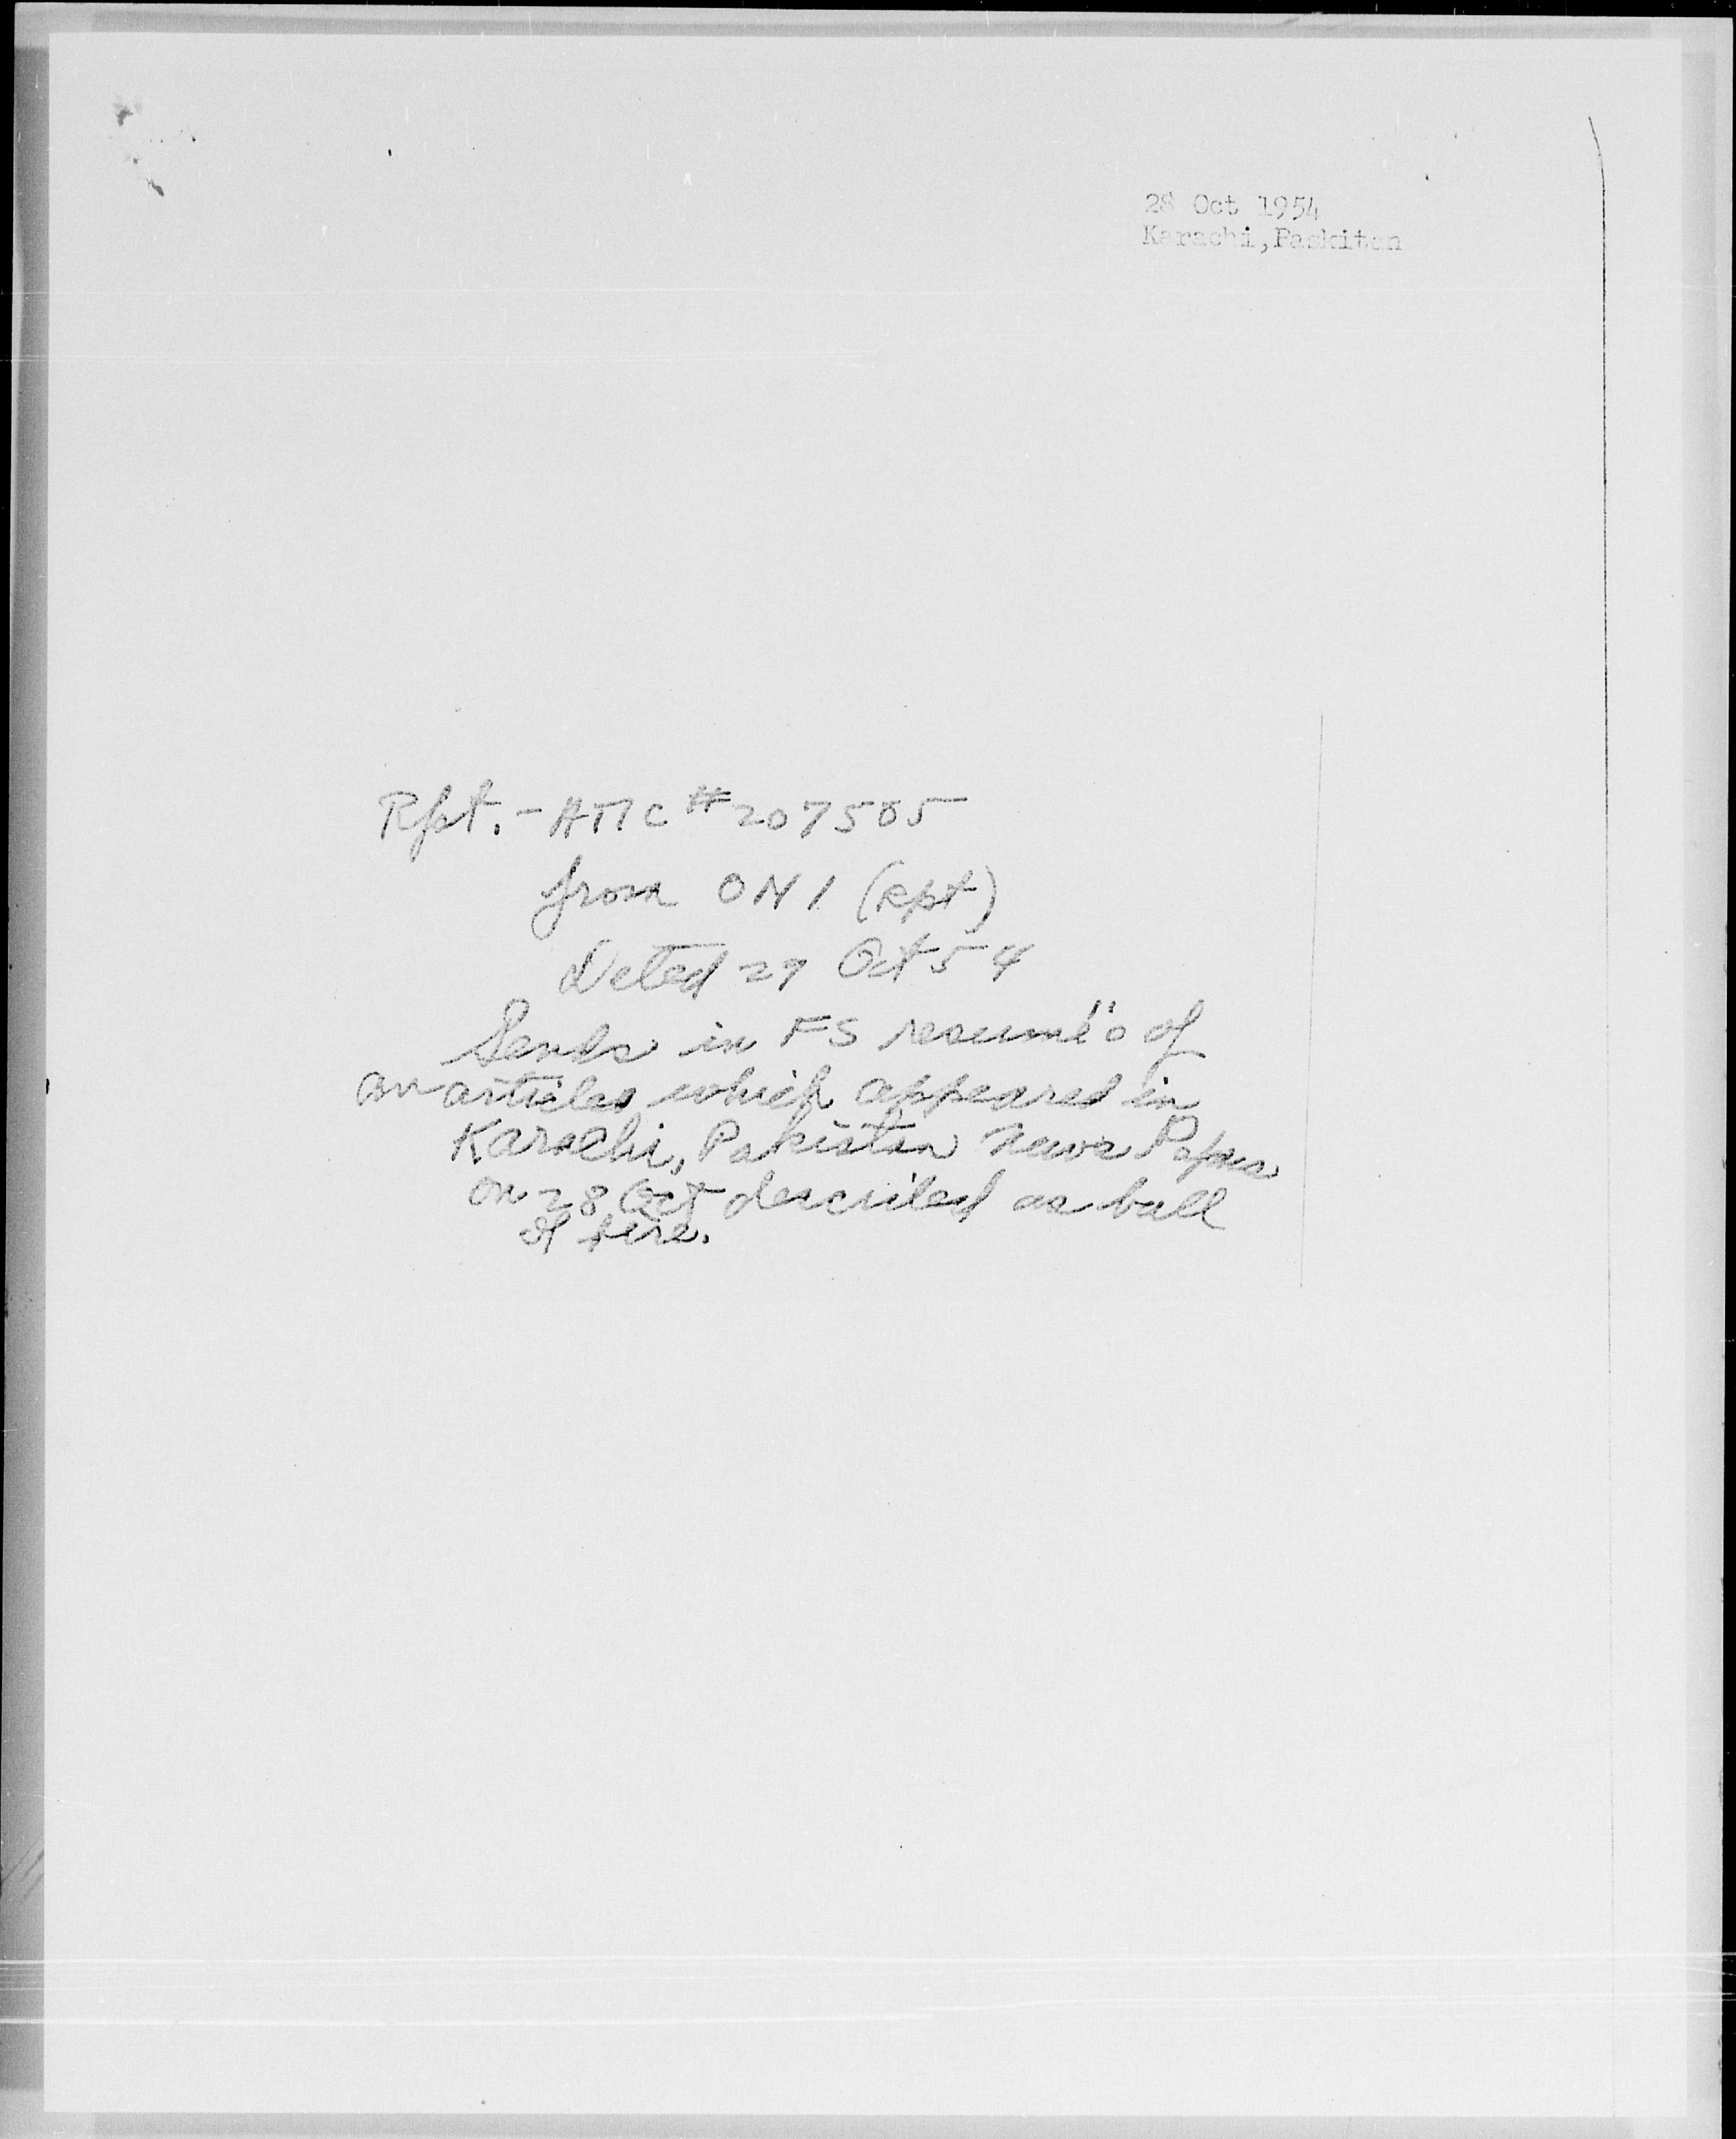 28 Oct 1954
Karachi,Paskitan
Rpt. - ATIC #207505
from ONI (Rpt)
Dated 29 Oct 54
Sends in FS resumé's of
an articles which appeared in
Karachi, Pakistan News Papers
on 28 Oct described as ball
of fire.